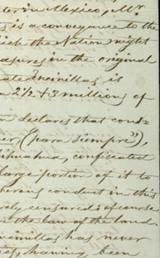 ter in Mexico, Mr
is a conveyance to the
ich the Nation might
asures in the original
ate Encinillas is
n 2 1/2 + 3 millions of
n declares that cond-
(para siempre"),
ihuahua, confiscated
large portion of it to
during conduct in this
censured
the law of the land.
has never
having been